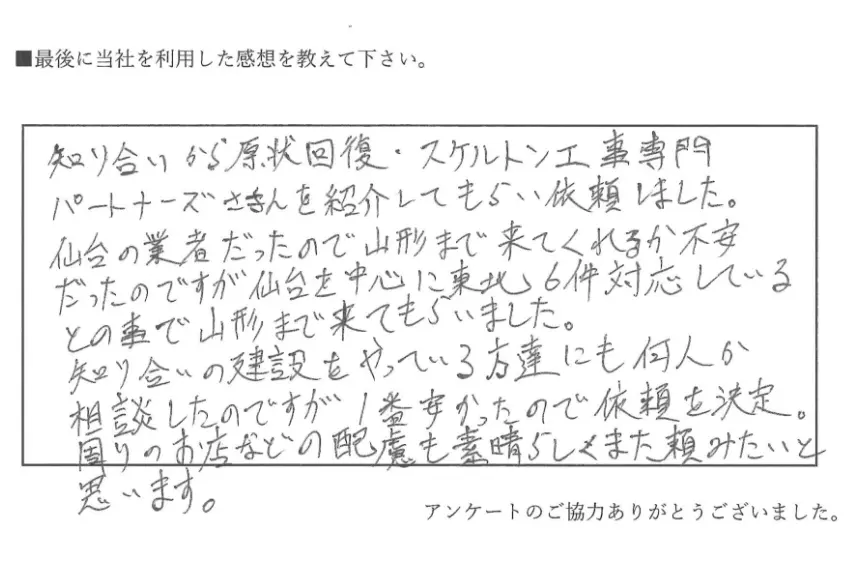 ■最後に当社を利用した感想を教えて下さい。
知り合いから原状回復・スケルトン工事専門
パートナーズさんを紹介してもらい依頼しました。
仙台の業者だったので山形まで来てくれるか不安
だったのですが仙台を中心に東北6件対応している
との事で山形まで来てもらいました。
知り合いの建設をやっている方達にも何人か
相談したのですが1番安かったので依頼を決定。
周りのお店などの配慮も素晴らしくまた頼みたいと
思います。
アンケートのご協力ありがとうございました。